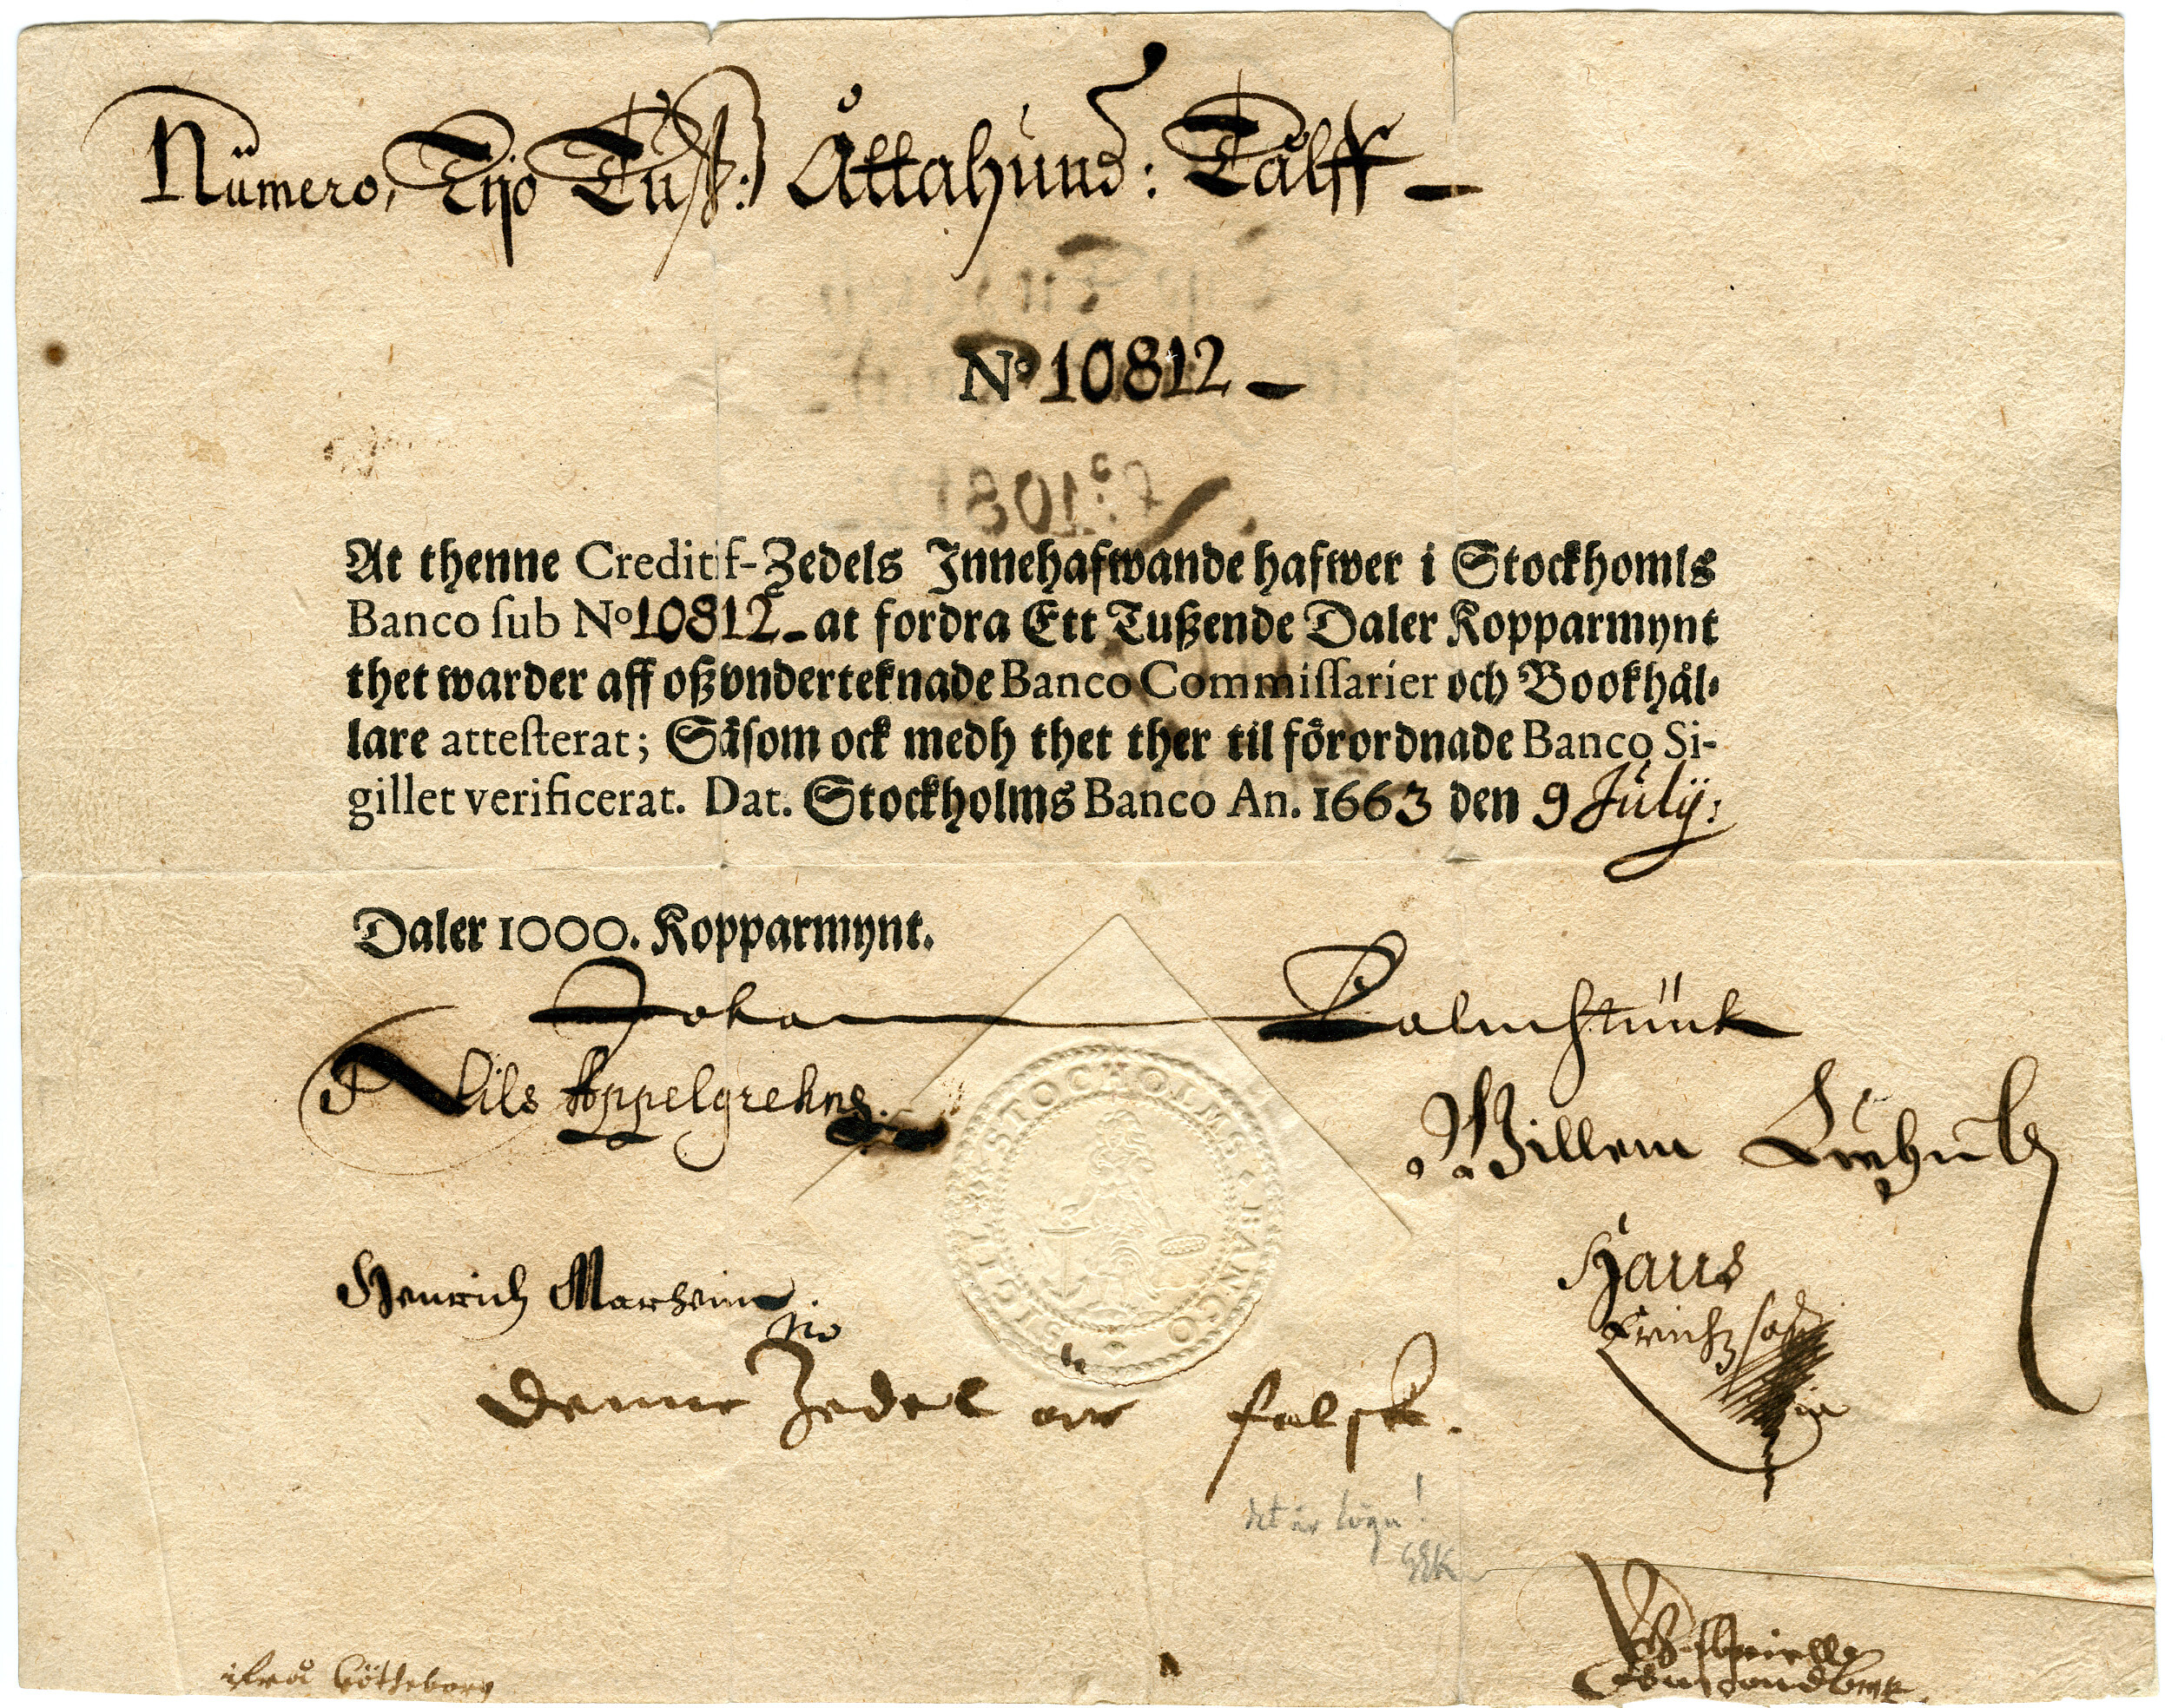 Numero, Tijo Tuß:) Åttahund: Tålff
No 10812
At thenne Creditif-Zedels Innehafwande hafwer i Stockhomls
Banco sub No 10812 at fordra Ett Tußende Daler Kopparmynt
thet warder aff oß vnderteknade Banco Commissarier och Bookhål-
lare attesterat; Såsom ock medh thet ther til förordnade Banco Si-
gillet verificerat. Dat. Stockholms Banco An. 1663 den 9 Julij:
Daler 1000. Kopparmynt.
Johan Palmstruck
Nils Appelgrehns
SIGIL STOCHOLMS BANCO
Willem
Henrich
Hans
Denne Zedel är falsk.
det är lögn!
GEK
ifrå Götteborg